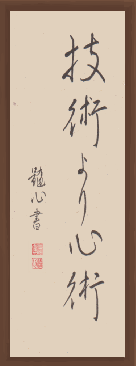 技術より心術
艶心書